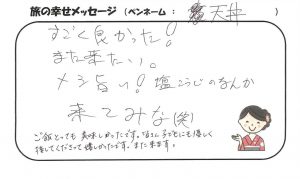 旅の幸せメッセージ (ペンネーム : 天丼 )
すごく良かった!
また来たい。
メシ旨い! 塩こうじのなんか
来てみな(笑)
ご飯とっても美味しかったです。 子どもにも優しく
接してくださって嬉しかったです。また来ます。